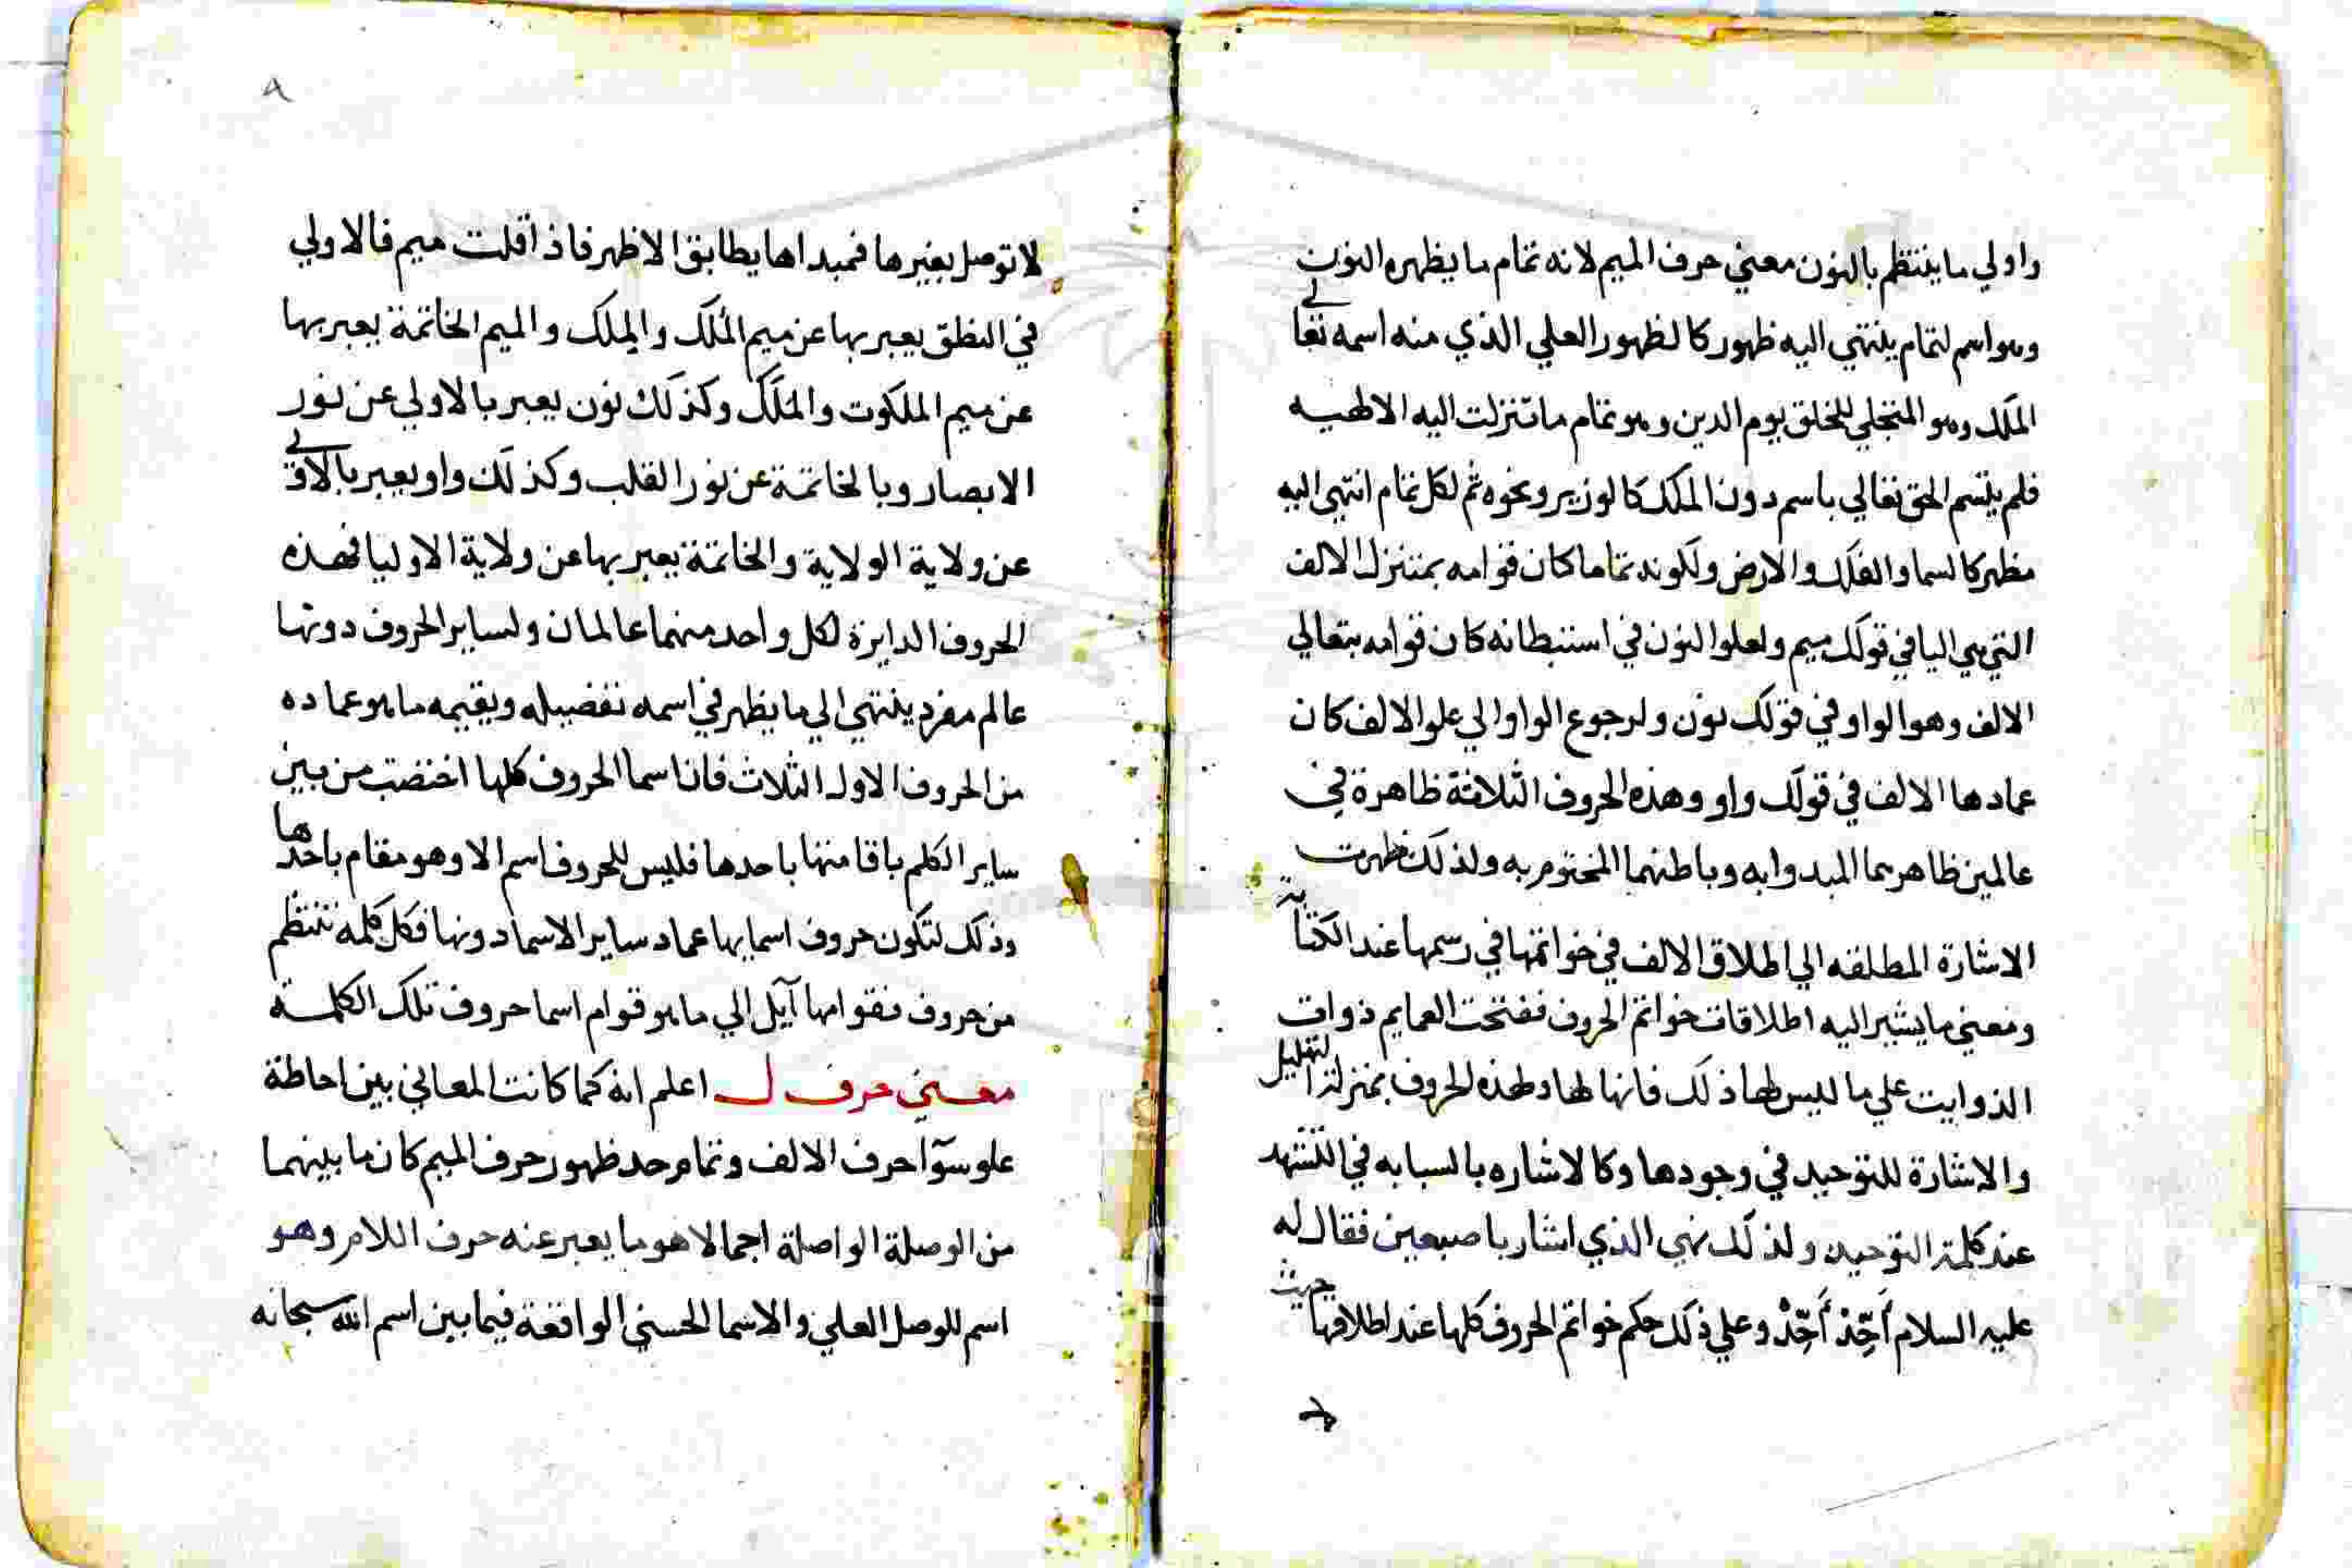 واولي ما ينتظم بالنون معني حرف الميم لانه تمام ما يظهره النون
وهو اسم لتمام ينتهي اليه ظهور كالظهور العلي الذي منه اسمه تعالى
الملك وهو المتجلي للخلق يوم الدين وهو تمام ما تنزلت اليه الالهيه
فلم يتسم الحق تعالي باسم دون الملك كالوزير ونحوه ثم لكل تمام انتهي اليه
مظهر كالسما والفلك والارض ولكونه تماما كان قوامه بمتنزل الالف
التي هي اليا في قولك ميم ولعلو النون في استبطانه كان قوامه بتعالي
الالف وهو الواو في قولك نون ولرجوع الواو الي علو الالف كان
عمادها الالف في قولك واو وهذه الحروف الثلاثة ظاهرة في
عالمين ظاهرهما المبدوا به وباطنهما المختوم به ولذلك ظهرت
الاشارة المطلقه الي اطلاق الالف في خواتمها في رسمها عند الكتابة
ومعني ما يشير اليه اطلاقات خواتم الحروف ففتحت العمايم ذوات
الذوايب علي ما ليس لها ذلك فانها لها ولهذه الحروف بمنزلة التهليل
والاشارة للتوحيد في وجودها وكالاشاره بالسبابه في التشهد
عند كلمة التوحيد ولذلك نهي الذي اشار باصبعين فقال له
عليه السلام أَحِّدْ أَحِّدْ وعلي ذلك حكم خواتم الحروف كلها عند اطلاقها حيث
٨
لا توصل بغيرها فمبداها يطابق الاظهر فاذا قلت ميم فالاولي
في النطق يعبر بها عن ميم المُلك والمِلك والميم الخاتمة يعبر بها
عن ميم الملكوت والمَلَك وكذلك نون يعبر بالاولي عن نور
الابصار وبالخاتمة عن نور القلب وكذلك واو يعبر بالاولى
عن ولاية الولاية والخاتمة يعبر بها عن ولاية الاوليا فهذه
الحروف الدايرة لكل واحد منهما عالمان ولساير الحروف دونها
عالم مفرد ينتهي الي ما يظهر في اسمه تفضيله ويقيمه ما هو عماده
من الحروف الاول الثلاث فان اسما الحروف كلها اختصت من بين
ساير الكلم باقامتها باحدها فليس للحروف اسم الا وهو مقام باحدها
وذلك لتكون حروف اسمايها عماد ساير الاسما دونها فكل كلمه تنتظم
من حروف فقوامها آيل الي ما هو قوام اسما حروف تلك الكلمة
معني حرف ل اعلم انه كما كانت المعاني بين احاطة
علو سوآ حرف الالف وتمام حد ظهور حرف الميم كان ما بينهما
من الوصلة الواصلة اجمالا هو ما يعبر عنه حرف اللام وهو
اسم للوصل العلي والاسما الحسني الواقعة فيما بين اسم الله سبحانه